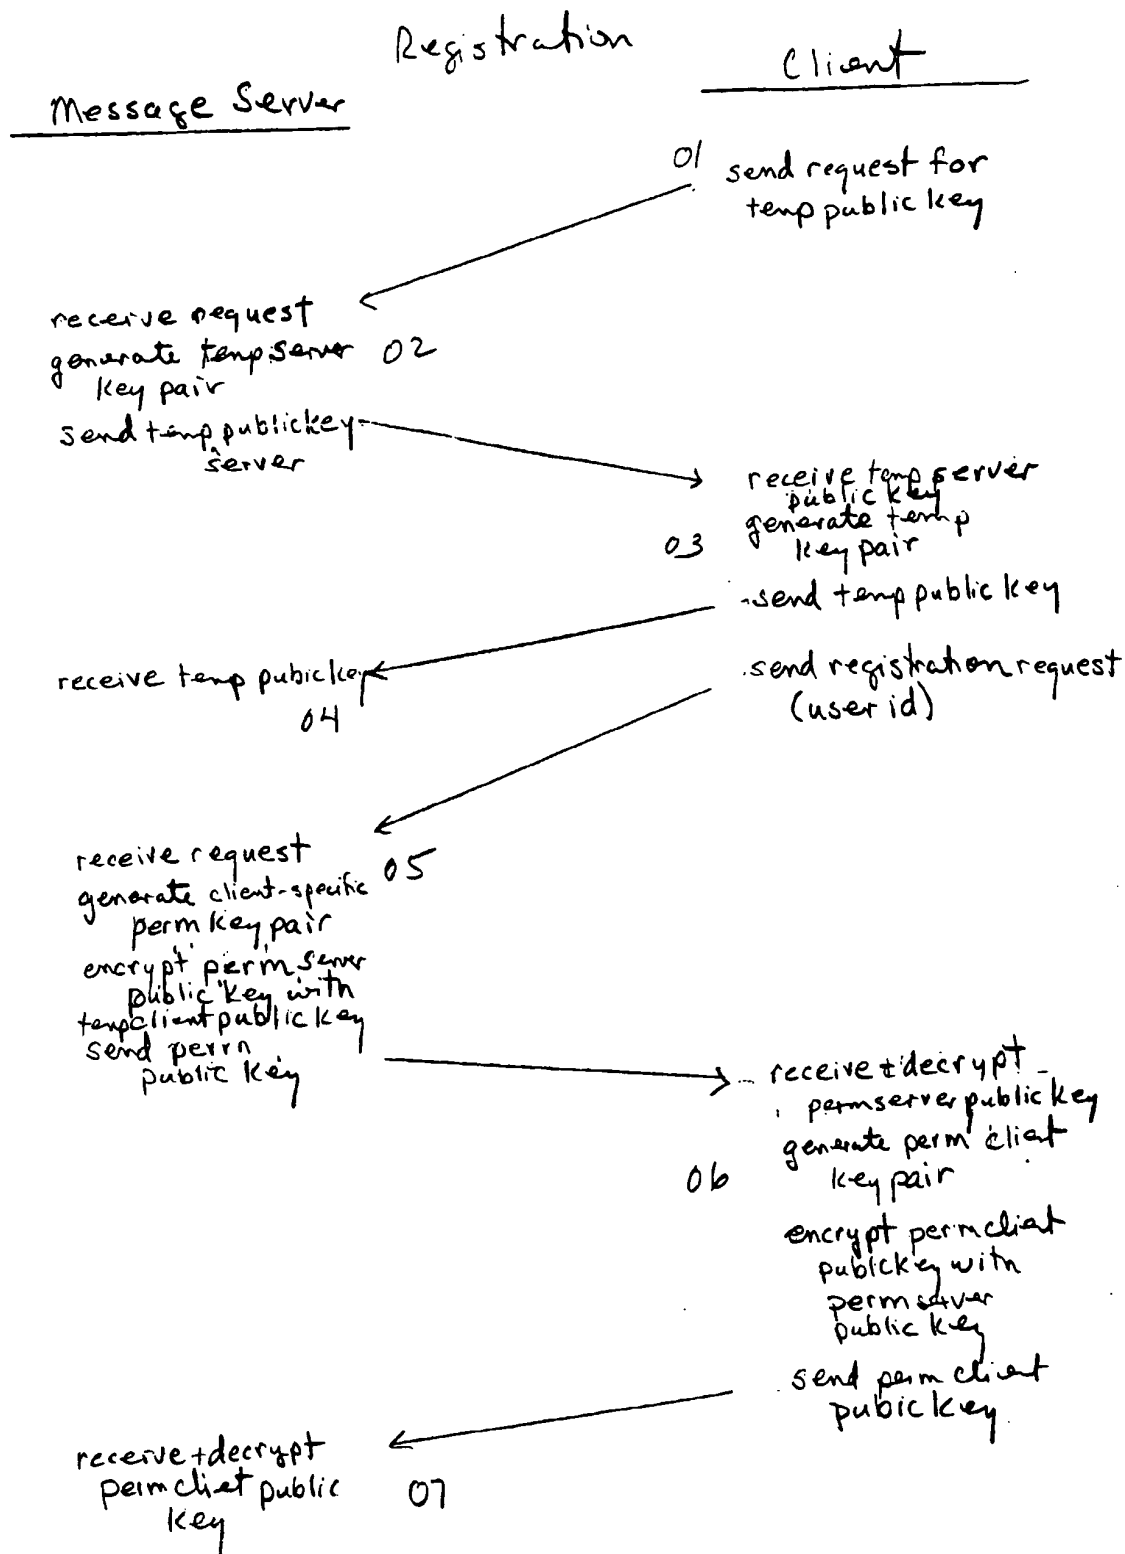 Registration
Message Server
Client
01
send request for
temp public key
receive request
generate temp server
key pair
02
send temp public key
server
receive temp server
public key
generate temp
key pair
03
send temp public key
receive temp pubic key
04
send registration request
(user id)
receive request
05
generate client-specific
perm key pair
encrypt perm server
public key with
temp client public key
send perm
public key
receive + decrypt
perm server public key
generate perm client
key pair
06
encrypt perm client
publckey with
perm server
public key
send perm client
pubic key
receive + decrypt
perm cliet public
key
07